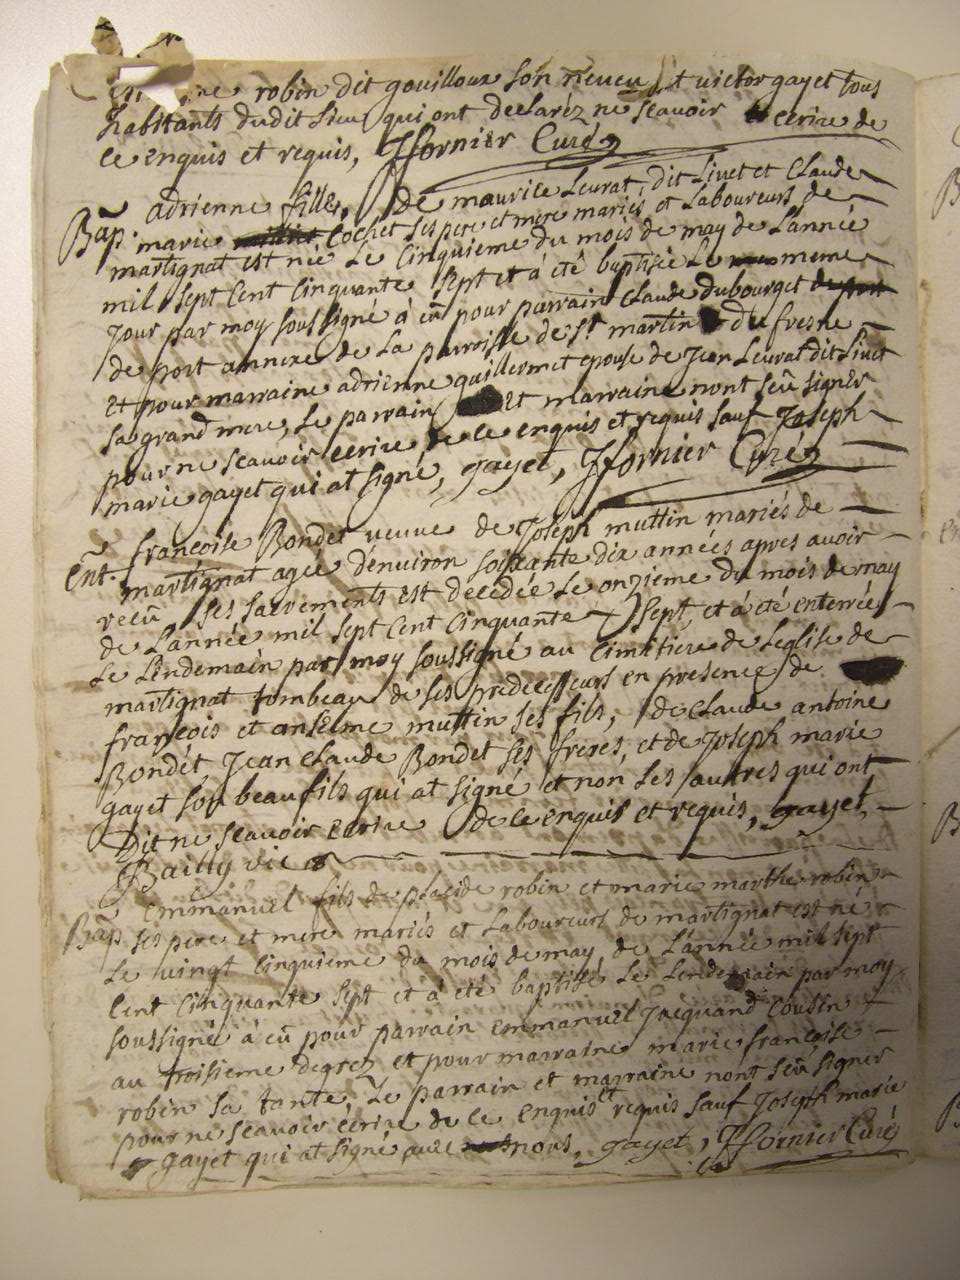 robin dit gouilloux son neveu et victor gayet tous
habitants dudit Lieu qui ont declaréz ne sçavoir ecrire de
ce enquis et requis, fornier Curé
Bap. adrienne fille de maurice Levrat dit Livet et Claude
marie Cochet ses pere et mere mariés et Laboureurs de
martignat est née Le Cinquieme du mois de may de L'année
mil sept Cent Cinquante sept et à été baptisée Le meme
jour par moy soussigné à eû pour parrain Claude dubourget
de port annexe de La parroisse de st martin du fresne
et pour marraine adrienne quillermet epouse de Jean Levrat dit Livet
sa grand mere, Le parrain et marraine n'ont seû signer
pour ne sçavoir ecrire de ce enquis et requis sauf Joseph
marie gayet qui at signé, gayet, fornier Curé
Ent. françoise Bondet veuve de Joseph muttin mariés de
martignat agée d'environ soixante dix années apres avoir
recû ses sacrements est decedée Le onzieme du mois de may
de L'année mil sept cent cinquante sept, et à été enterrée
Le Lindemain par moy soussigné au cimitiere de L'eglise de
martignat tombeau de ses predecesseurs en presence de
françois et anselme muttin ses fils, de Claude antoine
Bondet Jean Claude Bondet ses freres, et de Joseph marie
gayet son beaufils qui at signé et non Les autres qui ont
Dit ne sçavoir ecrire de ce enquis et requis, gayet,
Bailly vic
Bap. Emmanuel fils de placide robin et marie marthe robin
ses pere et mere mariés et Laboureurs de martignat est né
Le vingt cinquieme du mois de may de L'année mil sept
Cent Cinquante sept et à été baptisé Le Lendemain par moy
soussigné à eû pour parrain emmanuel Jacquand Cousin
au troisieme degrez et pour marraine marie françoise
robin sa tante Le parrain et marraine n'ont seû signer
pour ne sçavoir écrire de ce enquis et requis sauf Joseph marie
gayet qui at signé avec nous, gayet, fornier Curé